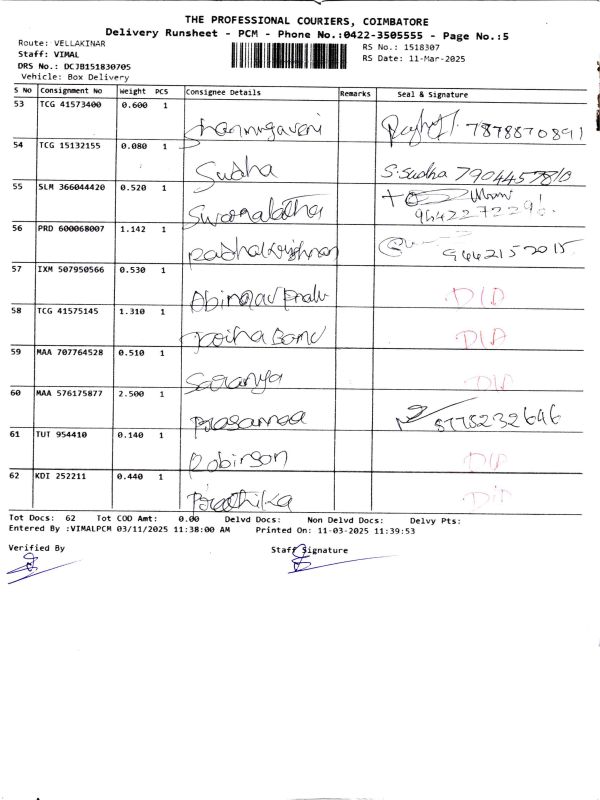 THE PROFESSIONAL COURIERS, COIMBATORE
Delivery Runsheet - PCM - Phone No.:0422-3505555 - Page No.:5
Route: VELLAKINAR
Staff: VIMAL
DRS No.: DCJB151830705
Vehicle: Box Delivery
RS No.: 1518307
RS Date: 11-Mar-2025
S No Consignment No Weight PCS Consignee Details Remarks Seal & Signature
53 TCG 41573400 0.600 1 7878870891
54 TCG 15132155 0.080 1 Sudha S.Sudha 7904457810
55 SLM 366044420 0.520 1 Swarnalatha
56 PRD 600068007 1.142 1 Radhakrishnan 9442152015
57 IXM 507950566 0.530 1 D/D
58 TCG 41575145 1.310 1 D/D
59 MAA 707764528 0.510 1 Saranya D/D
60 MAA 576175877 2.500 1 Prasanna 8778232646
61 TUT 954410 0.140 1 Robinson D/D
62 KDI 252211 0.440 1 Prathika D/D
Tot Docs: 62 Tot COD Amt: 0.00 Delvd Docs: Non Delvd Docs: Delvy Pts:
Entered By :VIMALPCM 03/11/2025 11:38:00 AM Printed On: 11-03-2025 11:39:53
Verified By Staff Signature